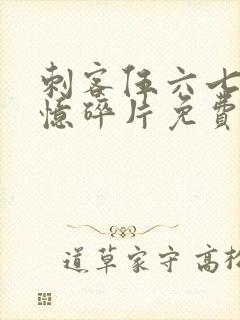 刺客伍六七
憶碎片免費
道草家守 高松